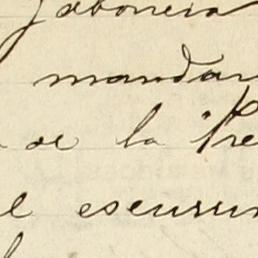 Jabonera
mandar
de la Pre
el escurri